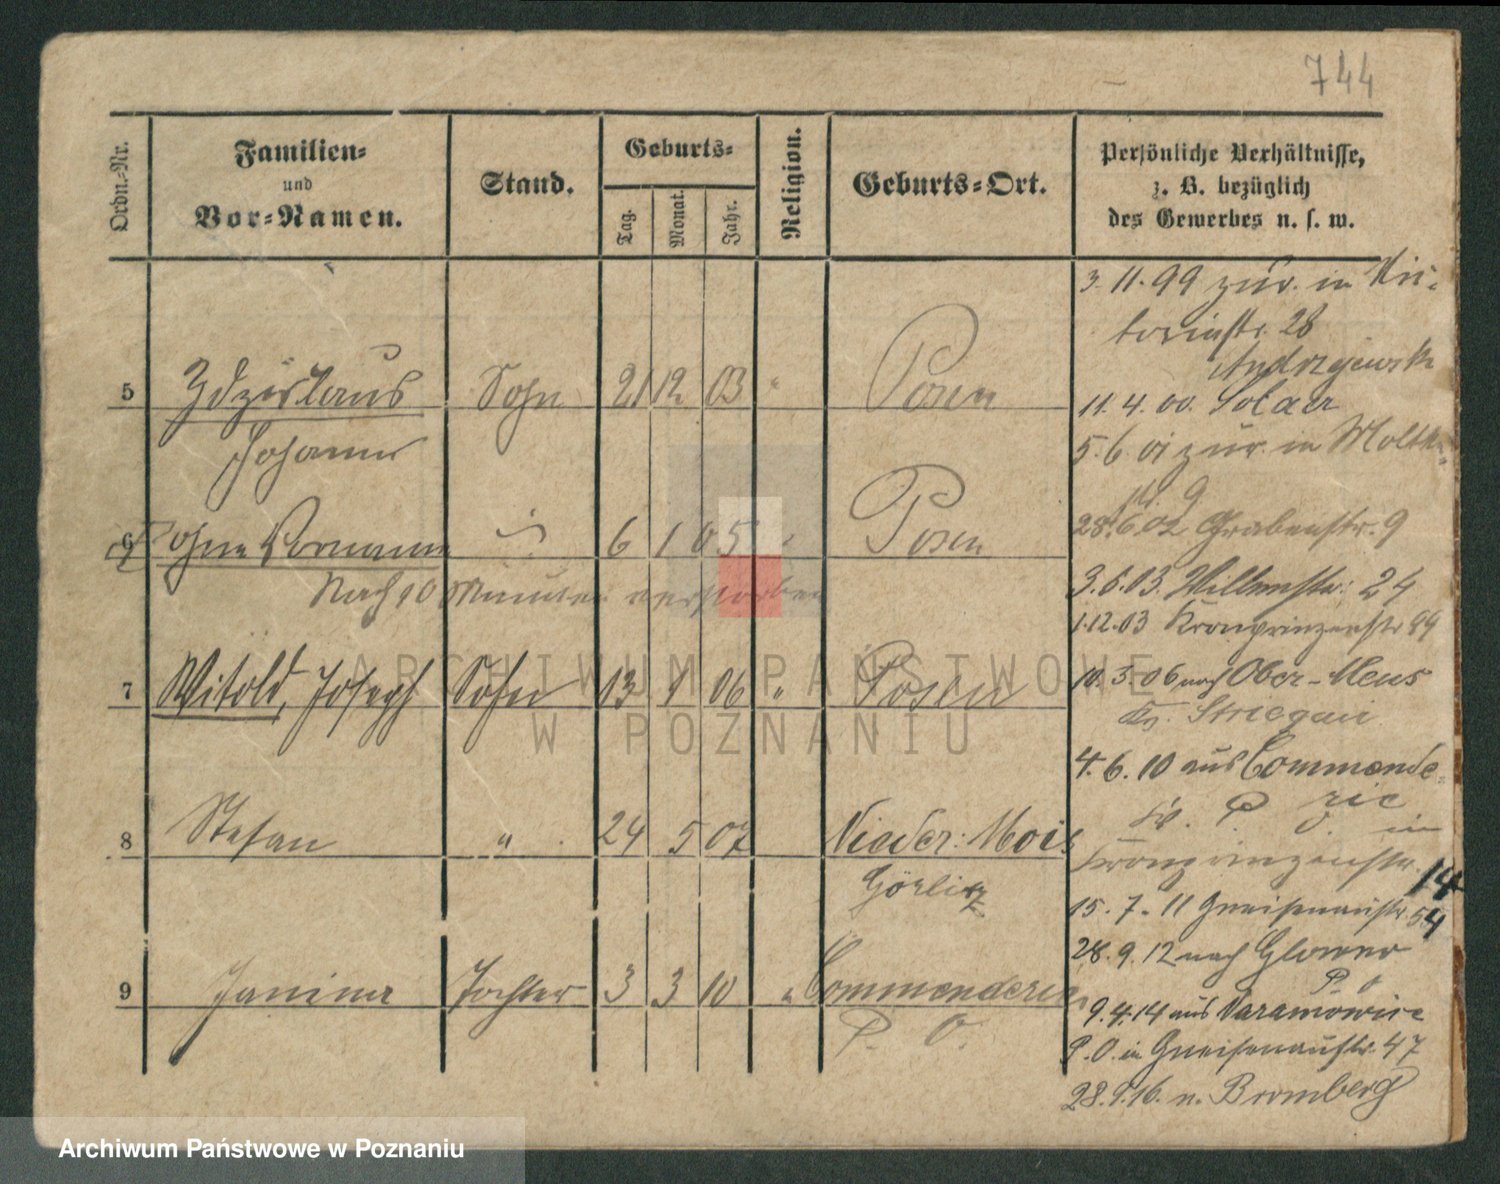 744
Ordn.-Nr.
Familien-
und
Vor-Namen.
Stand.
Geburts-
Tag.
Monat.
Jahr.
Religion.
Geburts-Ort.
Persönliche Verhältnisse,
z. B. bezüglich
des Gewerbes u. s. w.
5 Zdzislaus Sohn 21 12 03 " Posen
Johann
6 ohne Vornamen 6 1 05 " Posen
Nach 10 Minuten verstorben
7 Witold, Joseph Sohn 13 1 06 " Posen
8 Stefan " 24 5 07 Nieder: Mois
Görlitz
9 Janina Tochter 3 3 10 " Commenderie
P. O.
3. 11. 99 zur. in Vic-
toriastr. 28
Andrzejewski
11. 4. 00. Solacz
5. 6. 01 zur. in Moltke-
str. 9
28. 6. 02 Grabenstr. 9
3. 6. 03. str. 24
1. 12. 03 Kronprinzenstr 89
10. 3. 06 nach Ober-
Kr. Striegau
4. 6. 10 aus Commende-
rie
P. O. in
Kronprinzenstr. 14
15. 7. 11 Gneisenaustr. 54
28. 9. 12 nach Glowno
P. O
9. 4. 14 aus
P. O. in Gneisenaustr. 47
28. 9. 16. n. Bromberg
ARCHIWUM PAŃSTWOWE
W POZNANIU
Archiwum Państwowe w Poznaniu